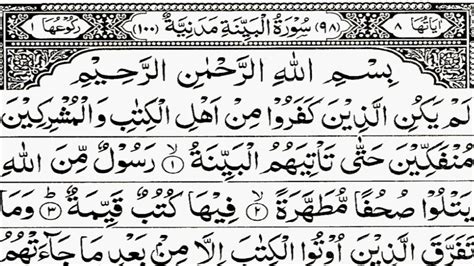 اٰيَاتُهَا ٨ (٩٨) سُوْرَةُ الْبَيِّنَةِ مَدَنِيَّةٌ (١٠٠) رُكُوْعُهَا ١
بِسْمِ اللهِ الرَّحْمٰنِ الرَّحِيْمِ
لَمْ يَكُنِ الَّذِيْنَ كَفَرُوْا مِنْ اَهْلِ الْكِتٰبِ وَالْمُشْرِكِيْنَ
مُنْفَكِّيْنَ حَتّٰى تَاْتِيَهُمُ الْبَيِّنَةُ ۙ ١ رَسُوْلٌ مِّنَ اللهِ
يَتْلُوْا صُحُفًا مُّطَهَّرَةً ۙ ٢ فِيْهَا كُتُبٌ قَيِّمَةٌ ؕ ٣ وَمَا
تَفَرَّقَ الَّذِيْنَ اُوْتُوا الْكِتٰبَ اِلَّا مِنْۢ بَعْدِ مَا جَآءَتْهُمُ